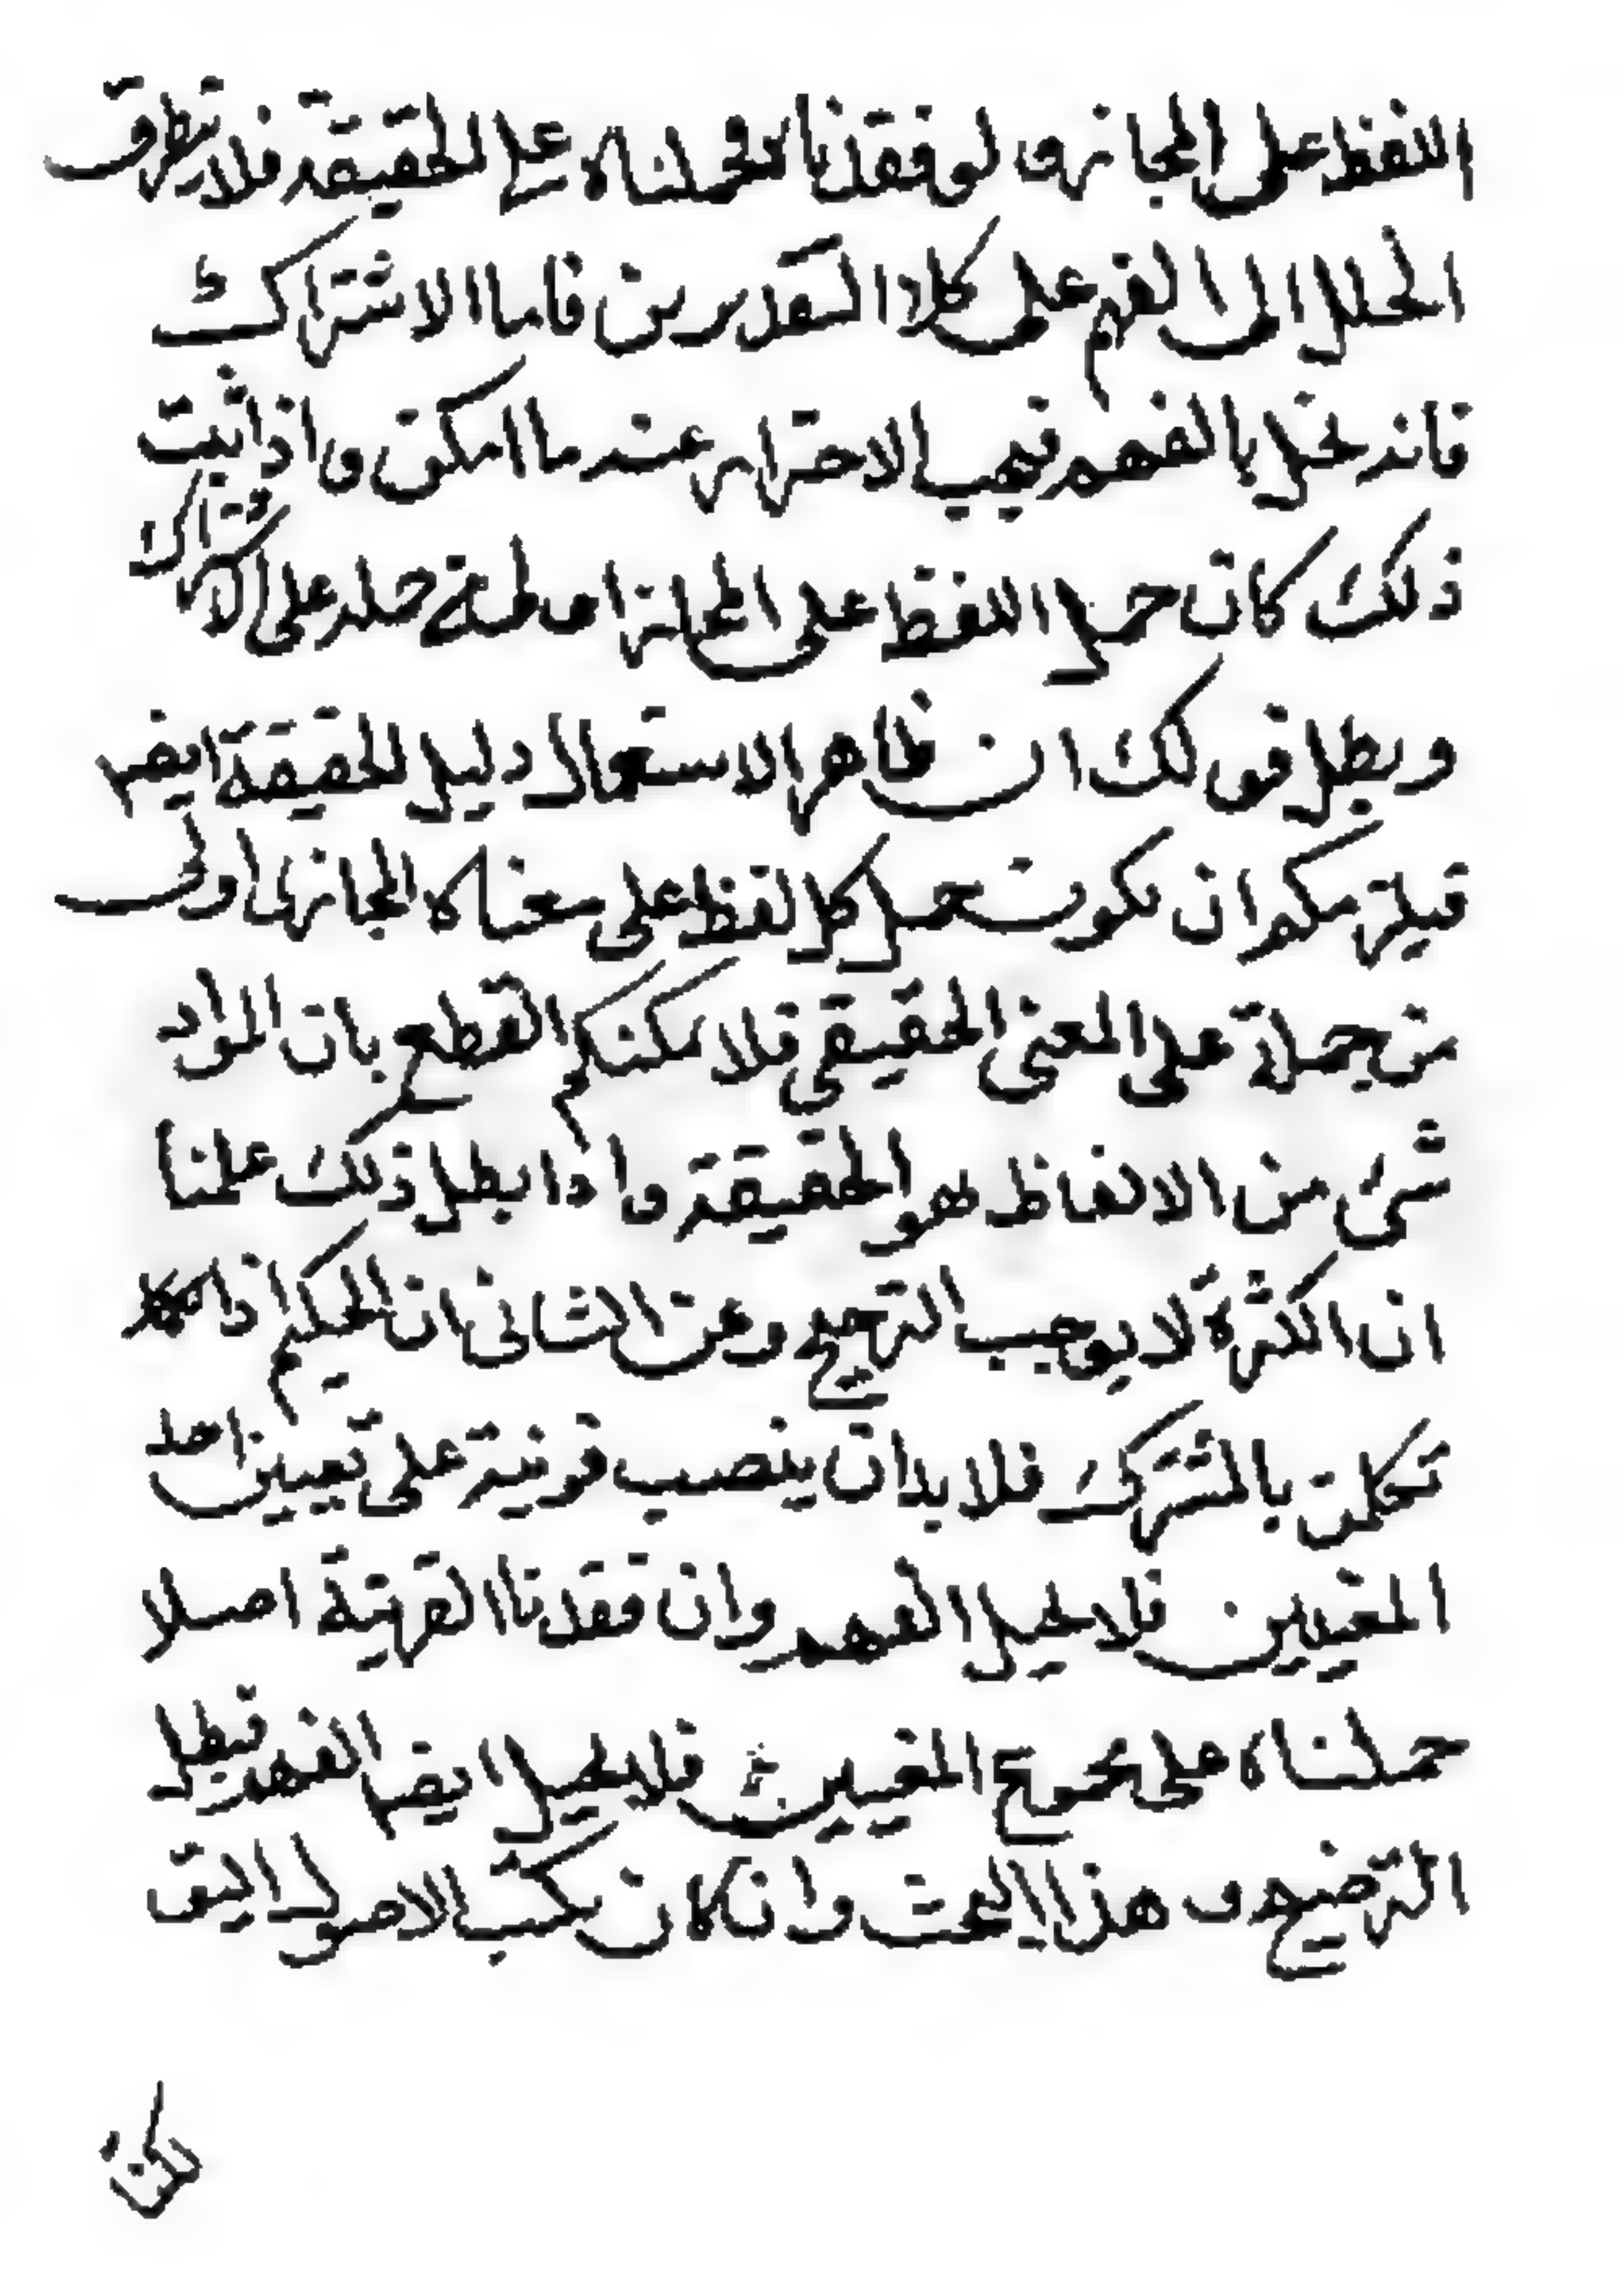 اللفظ على المجاز و لو فقدناه حملناه على الحقيقة فلا يتطرق
الخلل الى الفهم على كلا التقديرين فاما الاشتراك
فانه يخل بالفهم فيجب الاحتراز عنه ما امكن و اذا ثبت
ذلك كان حمل اللفظ على المجاز ا و لى من حمله على الاشتراك
و بطل قولك ان ظاهر الاستعمال دليل الحقيقة ايضا
فيلزمكم ان يكون حمل كل لفظ على معناه المجازى اولى
من حمله على المعنى الحقيقى فلا يمكنكم القطع بان المراد
شئ من الالفاظ هو الحقيقة و اذا بطل ذلك علمنا
ان الكثرة لا يوجب الترجيح و عن الثانى ان الحكيم اذا
تكلم بالمشترك فلا بد ان ينصب قرينة على تعيين احد
المعنيين فلا يخل الفهم و ان فقدنا القرينة اصلا
حملناه على مجموع المعنيين فلا يخل ايضا الفهم فبطل
الترجيح و هذا البحث و ان كان بكتب الاصول اليق
لكن